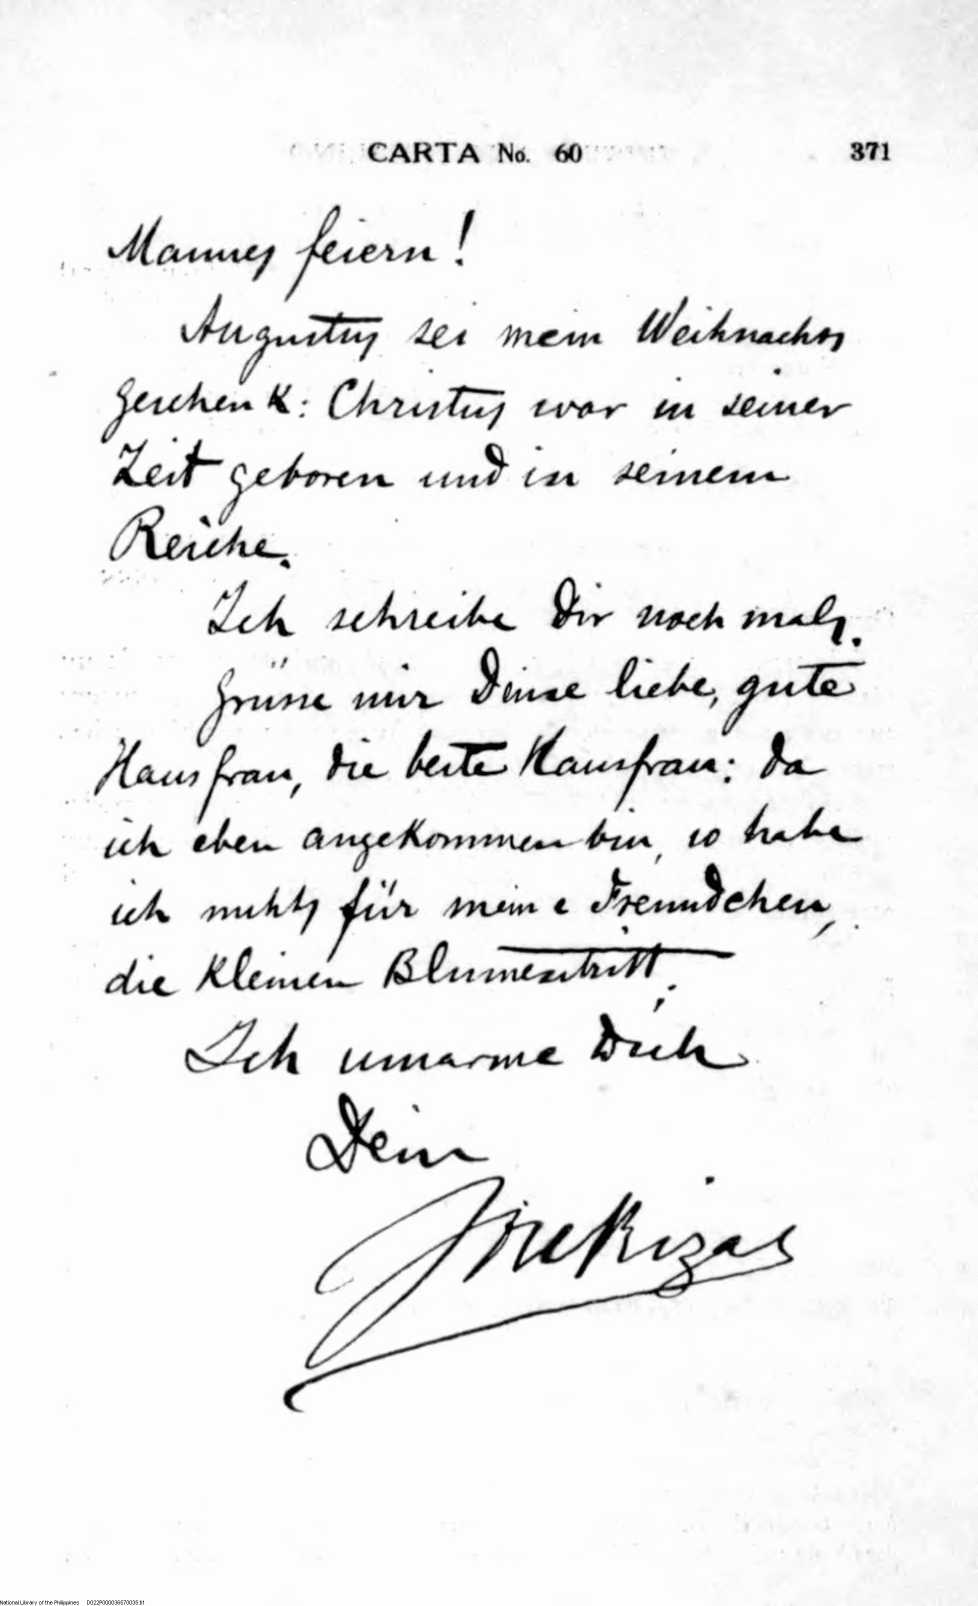 CARTA No. 60 371
Mannes feiern!
Augustus sei mein Weihnachts
geschenk: Christus war in seiner
Zeit geboren und in seinem
Reiche.
Ich schreibe Dir noch mals.
Grüsse mir Deine liebe, gute
Hausfrau, die beste Hausfrau: da
ich eben angekommen bin, so habe
ich nichts für meine Freundchen,
die kleinen Blumentritt.
Ich umarme Dich
Dein
José Rizal
National Library of the Philippines